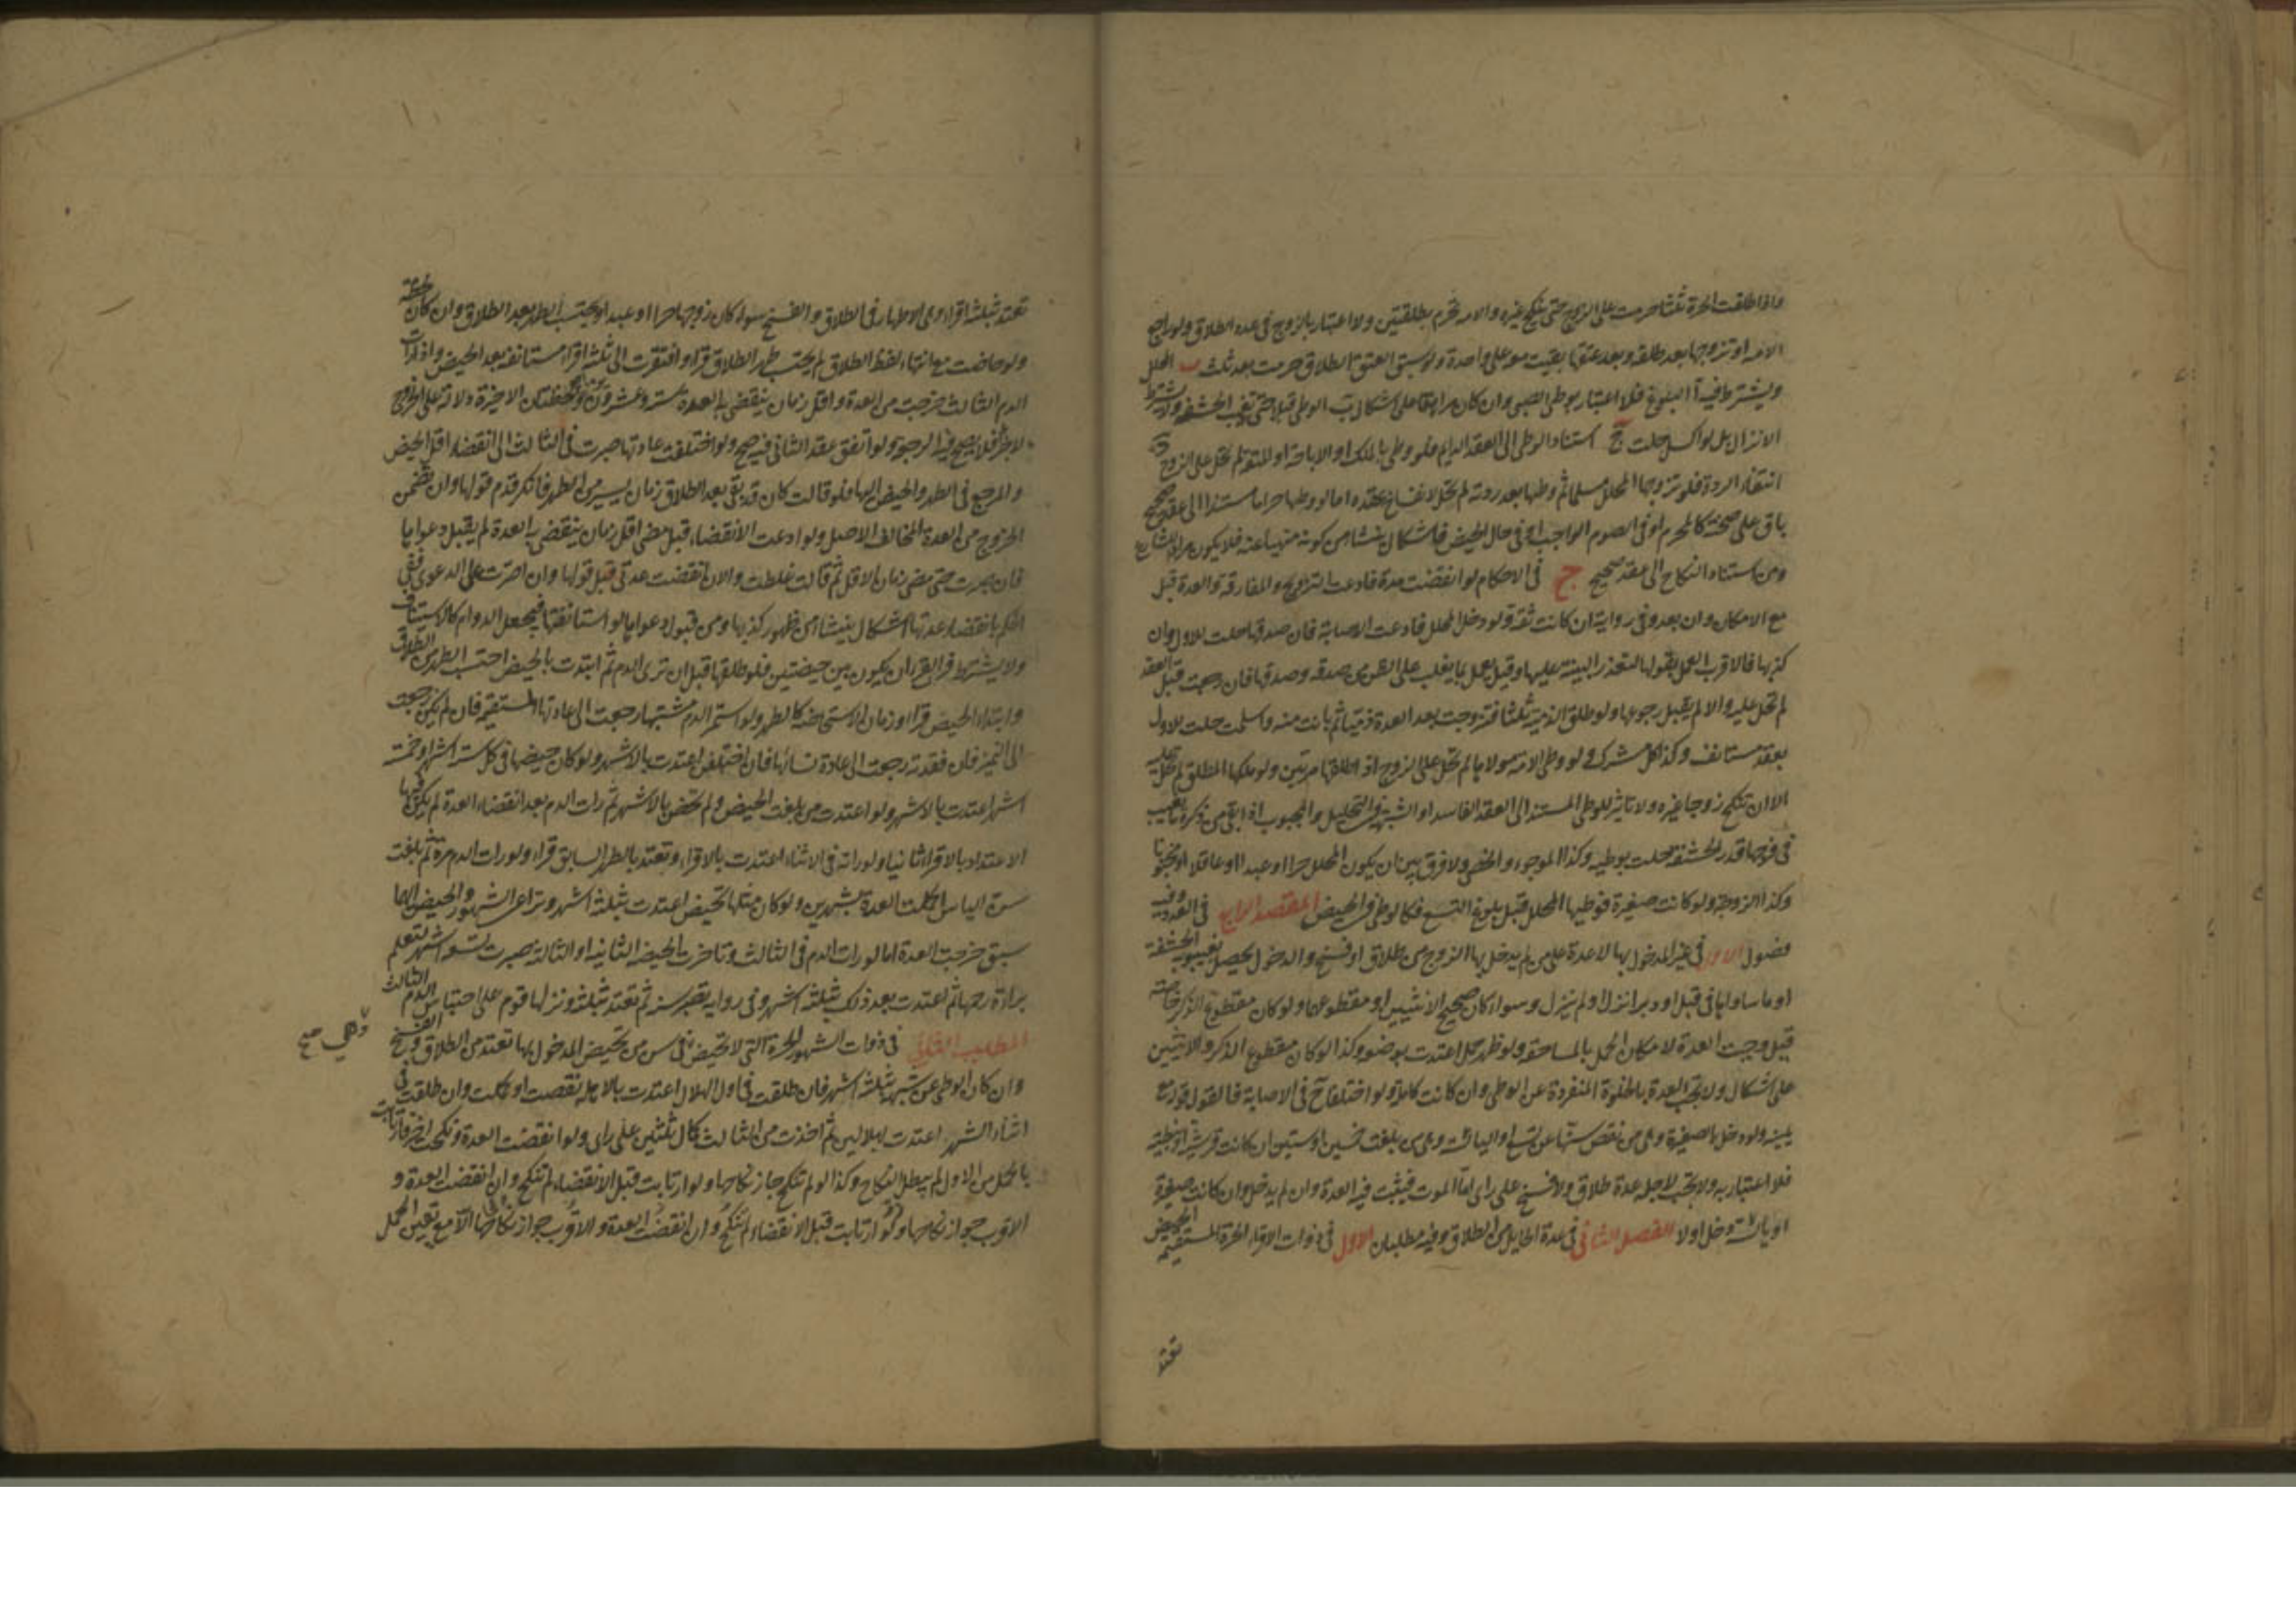 واذا طلقت الحرة ثلثا حرمت على الزوج حتى ينكح غيره والامة تحرم بطلقتين ولا اعتبار بالزوج في عدد الطلاق ولو راجع
الامة او تزوجها بعد طلقة وبعد عتقها بقيت معه على واحدة ولو سبق العتق الطلاق حرمت بعد ثلث ب المحلل
ويشترط فيه آ البلوغ فلا اعتبار بوطى الصبي وان كان مراهقا على اشكال ب الوطى قبلا حتى تغيب الحشفة ولا يشترط
الانزال بل لو اكسل حلت ج استناد الوطى الى العقد الدايم فلو وطى بالملك او الاباحة او المتعة لم تحل على الزوج د
انتفاء الردة فلو تزوجها المحلل مسلما ثم وطيها بعد ردته لم تحل لانفساخ عقده اما لو وطيها حراما مستندا الى عقد صحيح
باق على صحته كالمحرم او في الصوم الواجب او في حال الحيض فاشكال ينشا من كونه منهيا عنه فلا يكون مراد الشارع
ومن استناد النكاح الى عقد صحيح ج في الاحكام لو انقضت مدة فادعت التزويج والمفارقة والعدة قبل
مع الامكان وان بعد وفي رواية ان كانت ثقة ولو دخل المحلل فادعت الاصابة فان صدقها حلت للاول وان
كذبها فالاقرب العمل بقولها لتعذر البينة عليها وقيل يعمل بما يغلب على الظن من صدقه وصدقها فان رجعت قبل العقد
لم تحل عليه والا لم يقبل رجوعها ولو طلق الذمية ثلثا فتزوجت بعد العدة ذميا ثم بانت منه واسلمت حلت للاول
بعقد مستانف وكذا كل مشرك ولو وطى الامة مولاها لم تحل على الزوج اذا طلقها مرتين ولو ملكها المطلق لم تحل عليه
الا ان تنكح زوجا غيره ولا تاثير للوطى المستند الى العقد الفاسد او الشبهة في التحليل والمجبوب اذا بقى من ذكره ما يغيب
في فرجها قدر الحشفة حلت بوطيه وكذا الموجوء والخصي ولا فرق بين ان يكون المحلل حرا او عبدا او عاقلا او مجنونا
وكذا الزوجة ولو كانت صغيرة فوطيها المحلل قبل بلوغ التسع فكالوطى في الحيض المقصد الرابع في العدد وفيه
فصول الاول في غير المدخول بها لا عدة على من لم يدخل بها الزوج من طلاق او فسخ والدخول يحصل بغيبوبة الحشفة
او ما ساواها في قبل او دبر انزل او لم ينزل وسواء كان صحيح الانثيين او مقطوعهما ولو كان مقطوع الذكر خاصة
قيل وجبت العدة لامكان الحمل بالمساحقة ولو ظهر حمل اعتدت بوضعه وكذا لو كان مقطوع الذكر والانثيين
على اشكال ولا تجب العدة بالخلوة المنفردة عن الوطى وان كانت كاملة ولو اختلفا ح في الاصابة فالقول قوله مع
يمينه ولو دخل بالصغيرة وهي من نقص سنها عن تسع او اليائسة وهي من بلغت خمسين او ستين ان كانت قرشية او نبطية
فلا اعتبار به ولا تجب لاجله عدة طلاق ولا فسخ على راى اما الموت فيثبت فيه العدة وان لم يدخل وان كانت صغيرة
او يائسة دخل او لا الفصل الثاني في عدة الحايل من الطلاق وفيه مطلبان الاول في ذوات الاقراء الحرة المستقيمة الحيض
تعتد
تعتد بثلثة اقراء وهي الاطهار في الطلاق والفسخ سواء كان زوجها حرا او عبدا ويحتسب الطهر بعد الطلاق وان كان لحظة
ولو حاضت مع انتهاء لفظ الطلاق لم يحتسب طهر الطلاق قرءا وافتقرت الى ثلثة اقراء مستانفة بعد الحيض واذا رات
الدم الثالث خرجت من العدة واقل زمان ينقضي به العدة ستة وعشرون يوما ولحظتان الاخيرة دلالة على الخروج
لا جزء فلا يصح فيه الرجعة ولو اتفق عقد الثاني فيه صح ولو اختلفت عادتها صبرت في الثالث الى انقضاء اقل الحيض
والمرجع في الطهر والحيض اليها فلو قالت كان قد بقي بعد الطلاق زمان يسير من الطهر فانكر قدم قولها وان تضمن
الخروج من العدة المخالف للاصل ولو ادعت الانقضاء قبل مضى اقل زمان ينقضي به العدة لم يقبل دعواها
فان صبرت حتى مضى زمان الاقل ثم قالت غلطت والان انقضت عدتي قبل قولها وان اصرت على الدعوى ففي
الحكم بانقضاء عدتها اشكال ينشا من ظهور كذبها ومن قبول دعواها لو استانفتها فيجعل الدوام كالاستيناف
ولا يشترط في القرء ان يكون بين حيضتين فلو طلقها قبل ان ترى الدم ثم ابتدت بالحيض احتسب الطهر بين الطلاق
وابتداء الحيض قرءا وزمان الاستحاضة كالطهر ولو استمر الدم مشتبها رجعت الى عادتها المستقيمة فان لم يكن رجعت
الى التميز فان فقدته رجعت الى عادة نسائها فان اختلفن اعتدت بالاشهر ولو كان حيضها في كل ستة اشهر او خمسة
اشهر اعتدت بالاشهر ولو اعتدت من بلغت الحيض ولم تحض بالاشهر ثم رات الدم بعد انقضاء العدة لم يكن عليها
الاعتداد بالاقراء ثانيا ولو راته في الاثناء اعتدت بالاقراء وتعتد بالطهر السابق قرءا ولو رات الدم مرة ثم بلغت
سن الياس اكملت العدة بشهرين ولو كان مثلها تحيض اعتدت بثلثة اشهر وتراعى الشهور والحيض ايهما
سبق خرجت العدة اما لو رات الدم في الثالث وتاخرت الحيضة الثانية او الثالثة صبرت تسعة اشهر لتعلم
براءة رحمها ثم اعتدت بعد ذلك بثلثة اشهر وفي رواية تصبر سنة ثم تعتد بثلثة ونزلها قوم على احتباس الدم الثالث
المطلب الثاني في ذوات الشهور الحرة التي لا تحيض وهي في سن من تحيض المدخول بها تعتد من الطلاق والفسخ
وهي صح
وان كان الوطى عن شبهة بثلثة اشهر فان طلقت في اول الهلال اعتدت بالاهلة نقصت او كملت وان طلقت في
اثناء الشهر اعتدت بهلالين ثم اخذت من الثالث كمال ثلثين على راى ولو انقضت العدة ونكحت اخر فارتابت
بالحمل من الاول لم يبطل النكاح وكذا لو لم تنكح جاز نكاحها ولو ارتابت قبل الانقضاء لم تنكح وان انقضت العدة و
الاقرب جواز نكاحها ولو ارتابت قبل الانقضاء لم تنكح وان انقضت العدة والاقرب جواز نكاحها الا مع تعين الحمل